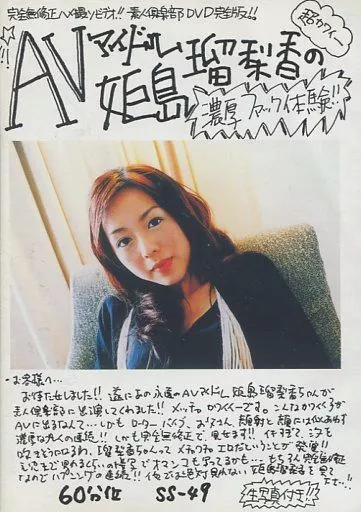 完全無修正ハメ撮りビデオ!! 素人倶楽部DVD完全版!!
超カワイ〜
AVアイドル
姫島瑠梨香の
濃厚ファック体験!!
お客様へ…
お待たせしました!! 遂にあの永遠のAVアイドル 姫島瑠梨香ちゃんが
素人倶楽部に出演してくれました!! メッチャカワイイーです。こんなカワイイ子が
AVに出るなんて…しかもローター、バイブ、おまえさん、顔射と顔には似あわず
濃厚な
の連続!! しかも完全無修正で、見せます!! イキすぎて、
瑠梨香ちゃんってメチャクチャエロだということが発覚!!
オマンコも写ってるかも… もちろん完全無修正
なのでハプニングの連続!! 他では絶対見れない姫島瑠梨香を見て
下さい…!!
60分位 SS-49
生写真付き!!